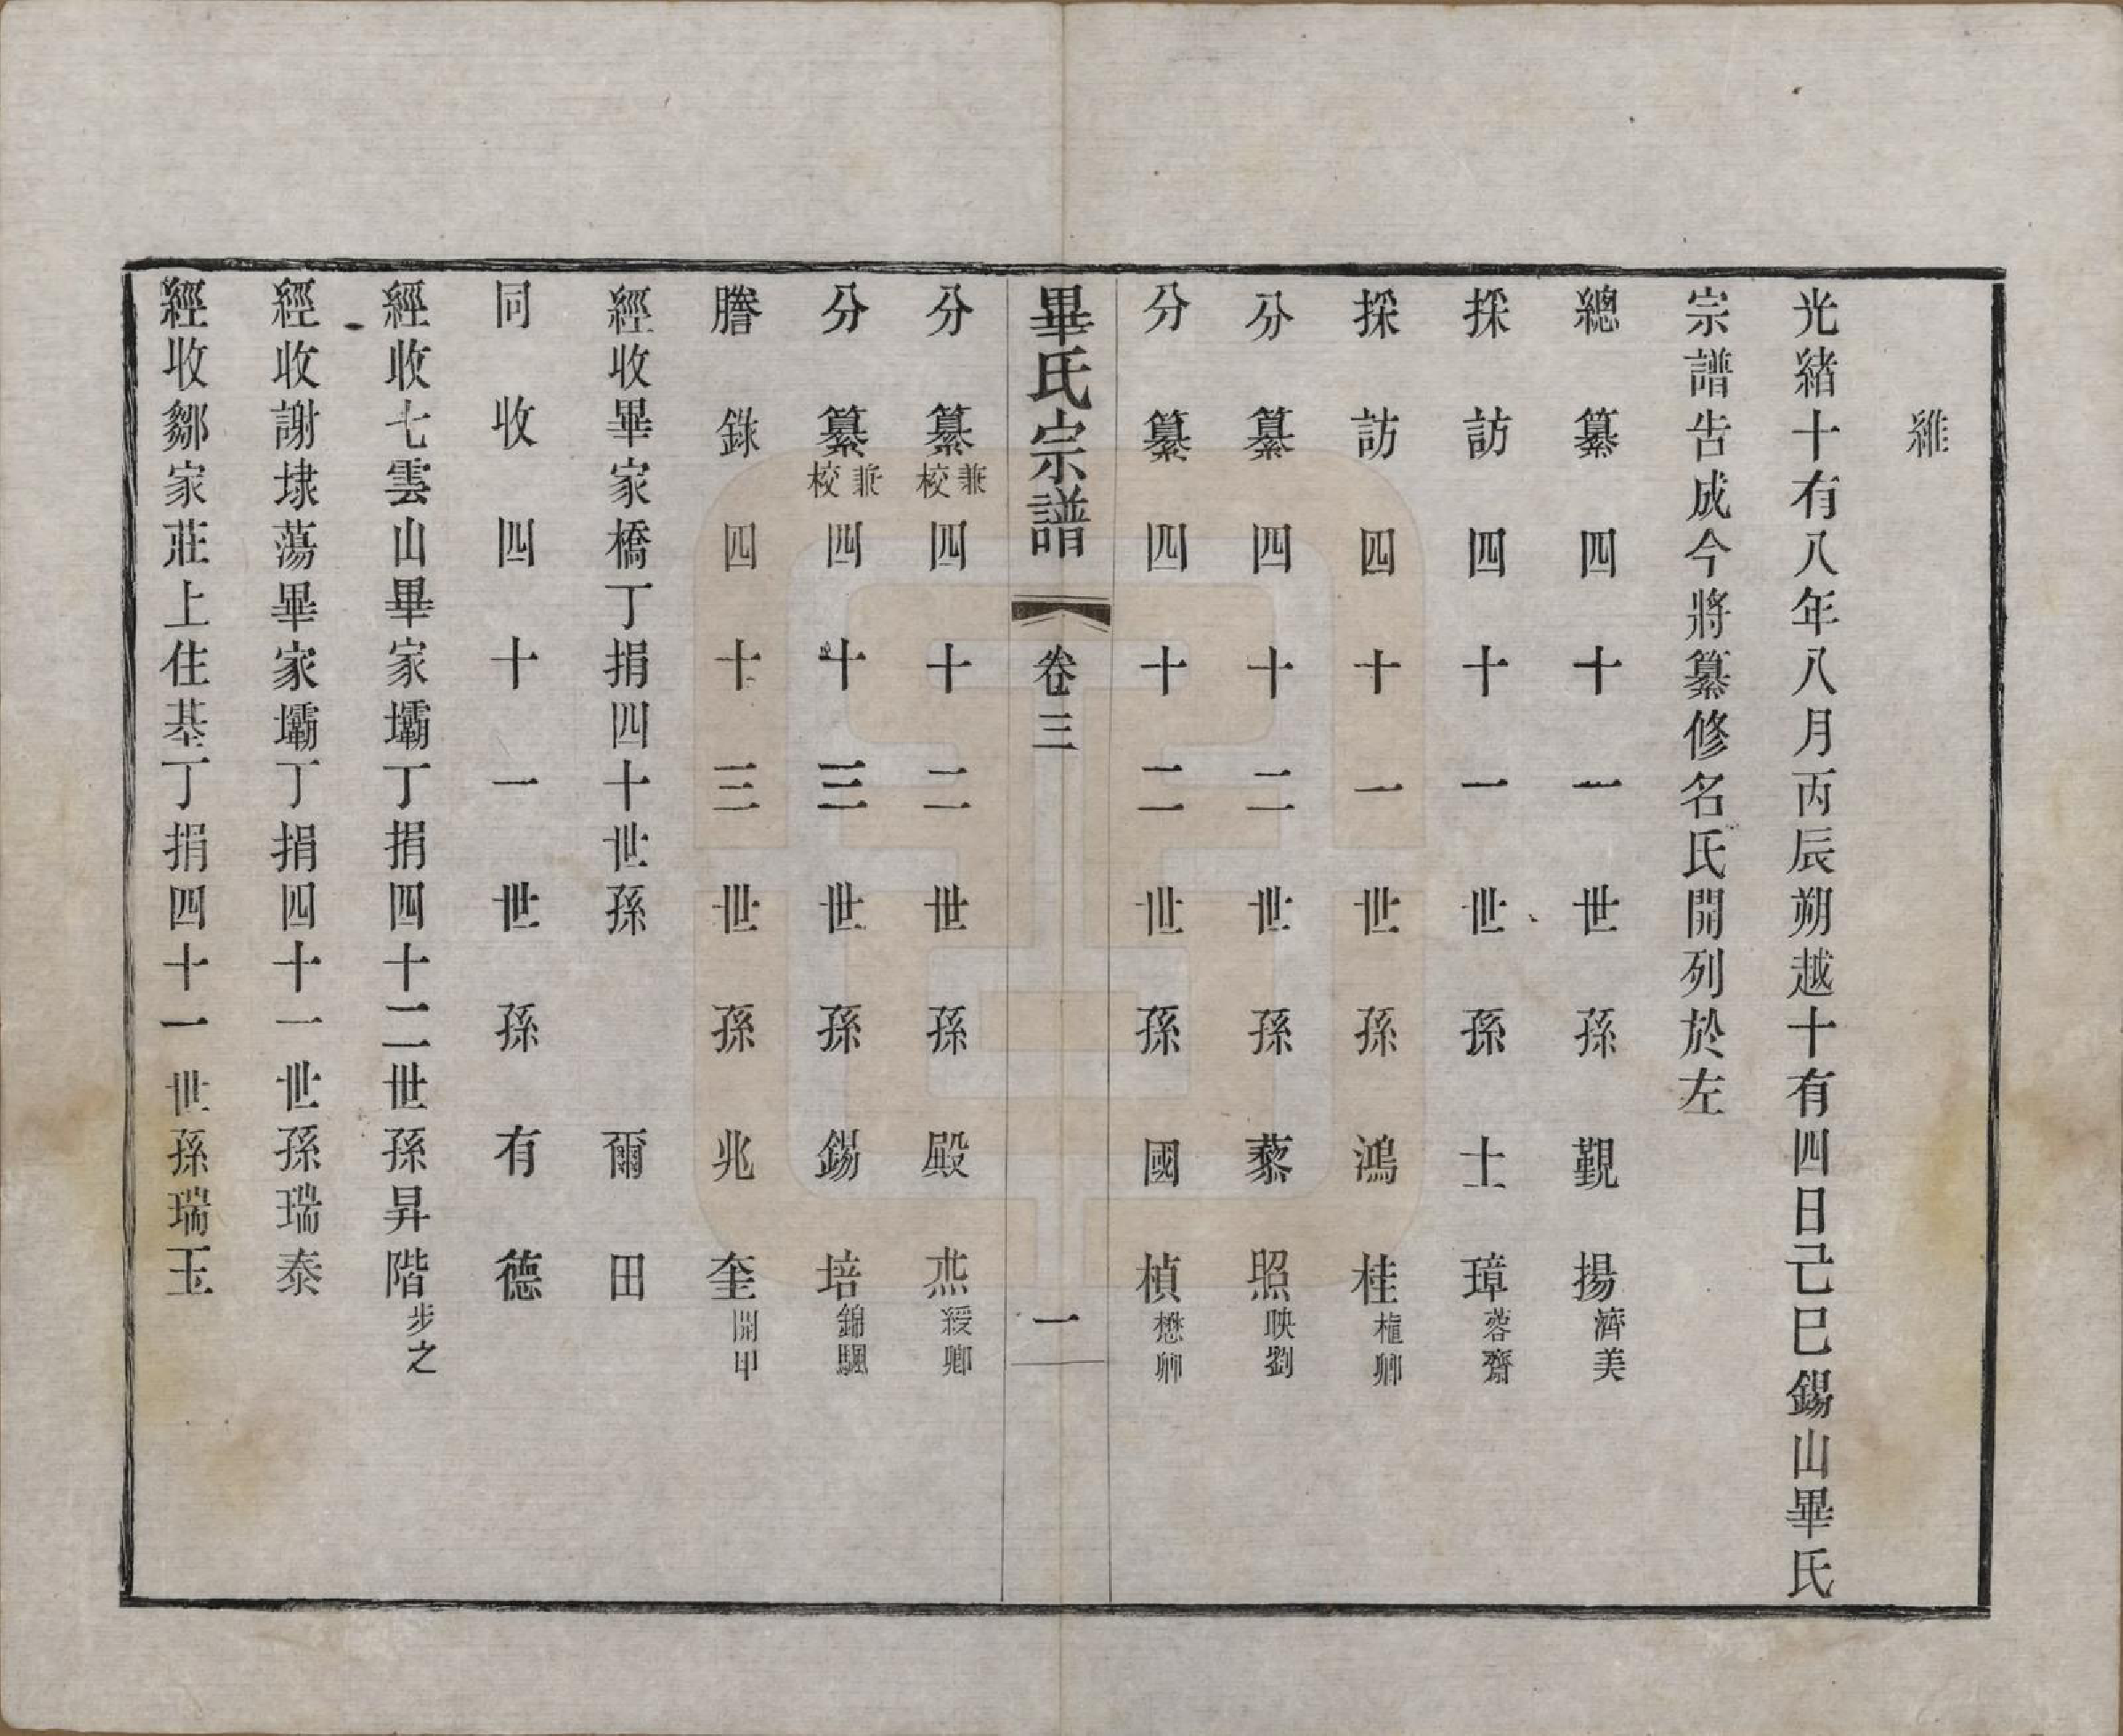 維
光緒十有八年八月丙辰朔越十有四日己巳錫山畢氏
宗譜告成今將纂修名氏開列於左
總纂四十一世孫覲揚濟美
採訪四十一世孫士璋蓉齋
採訪四十一世孫鴻桂權卿
分纂四十二世孫藜照映劉
分纂四十二世孫國楨懋卿
畢氏宗譜 卷三 一
分纂兼校四十二世孫殿烝綬卿
分纂兼校四十三世孫錫培錦颿
謄錄四十三世孫兆奎開甲
經收畢家橋丁捐四十世孫爾田
同收四十一世孫有德
經收七雲山畢家壩丁捐四十二世孫昇階步之
經收謝埭蕩畢家壩丁捐四十一世孫瑞泰
經收鄒家莊上住基丁捐四十一世孫瑞玉